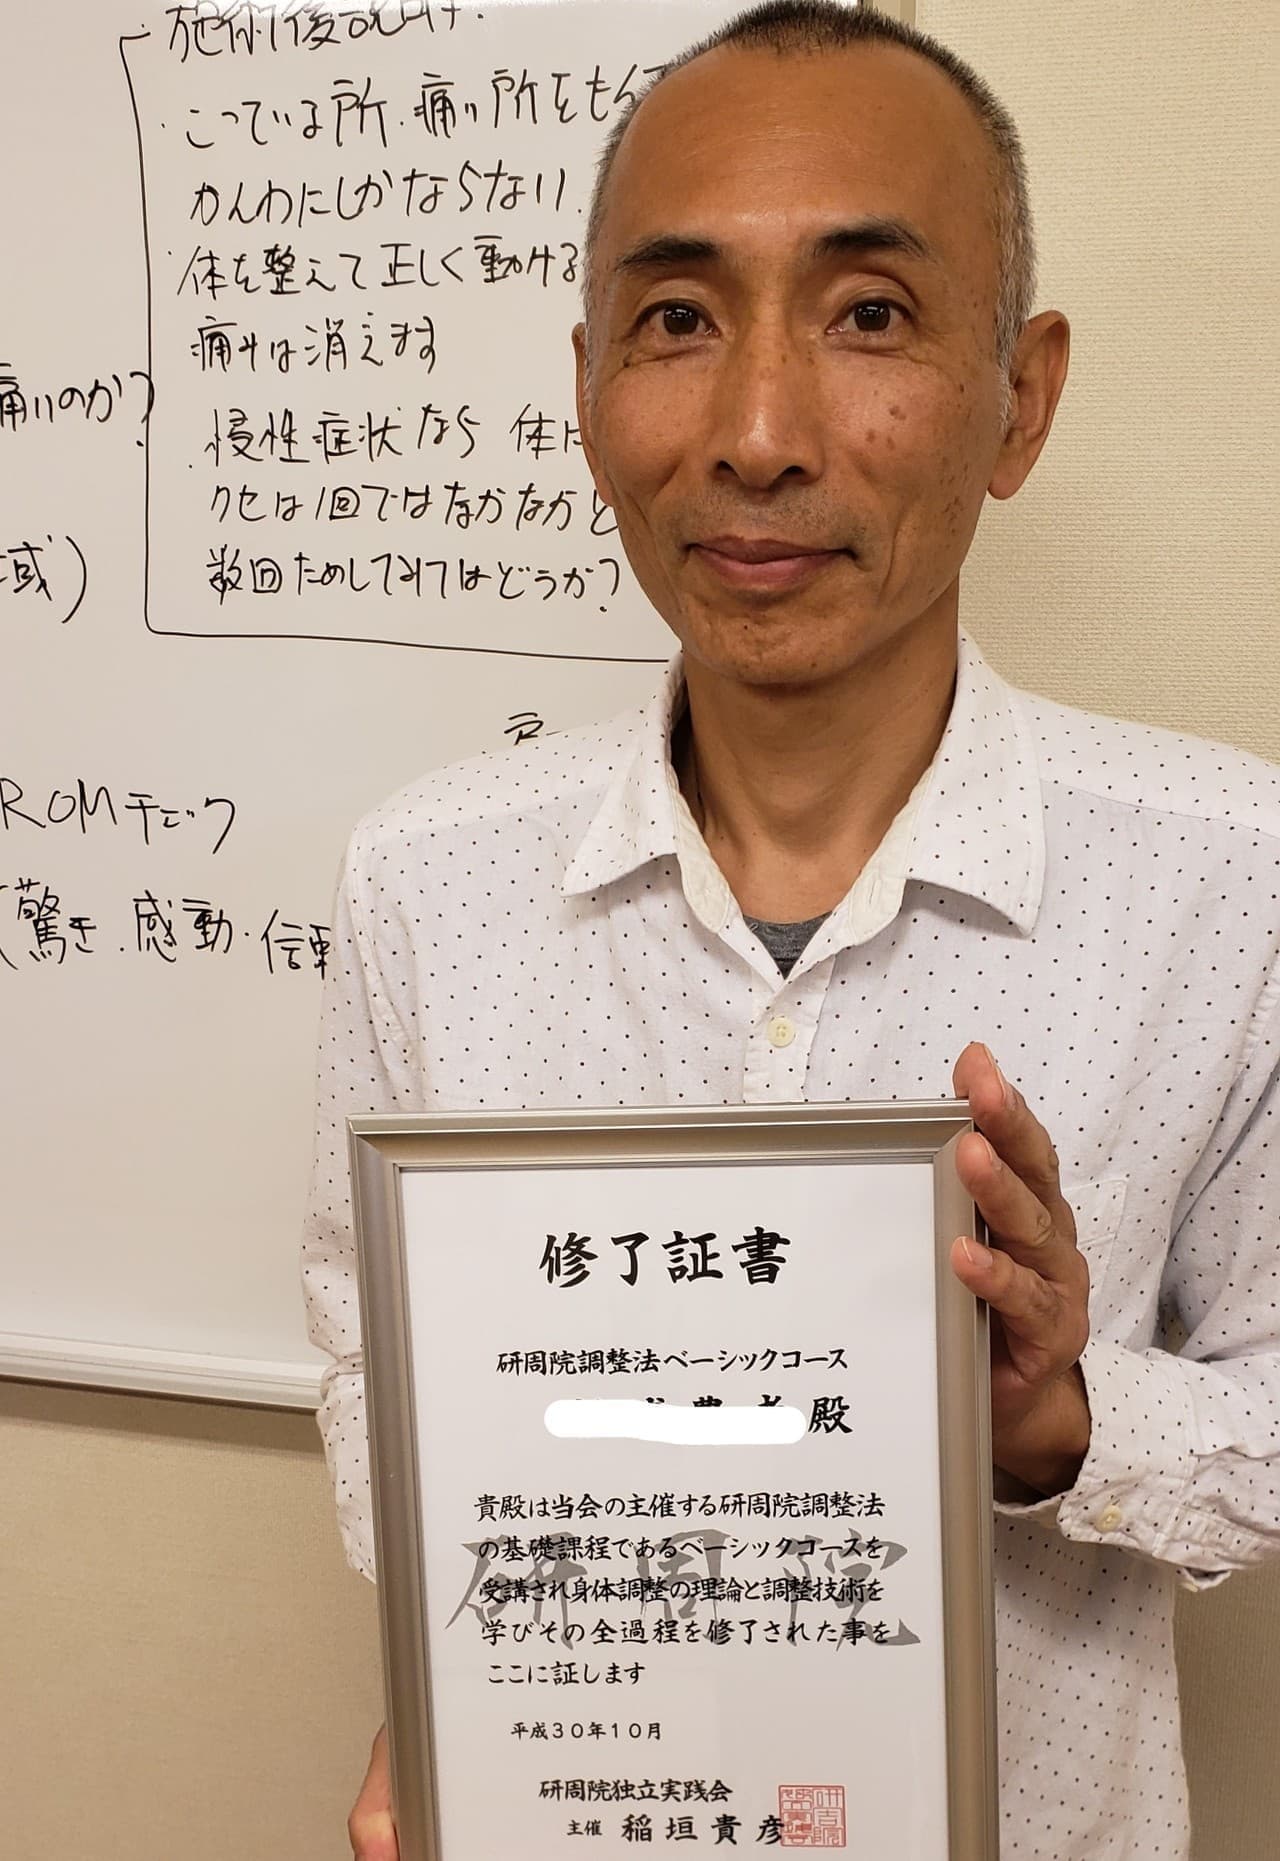 施術後説明
こっている所.痛い所をも
かんわにしかならない.
体を整えて正しく動ける
痛みは消えます
慢性症状なら 体に
クセは1回ではなかなかと
数回ためしてみてはどうか?
痛いのか?
域)
ROMチェック
(驚き.感動.信
修了証書
研周院調整法ベーシックコース
殿
貴殿は当会の主催する研周院調整法
の基礎課程であるベーシックコースを
受講され身体調整の理論と調整技術を
学びその全過程を修了された事を
ここに証します
研周院
平成30年10月
研周院独立実践会
主催 稲垣貴彦